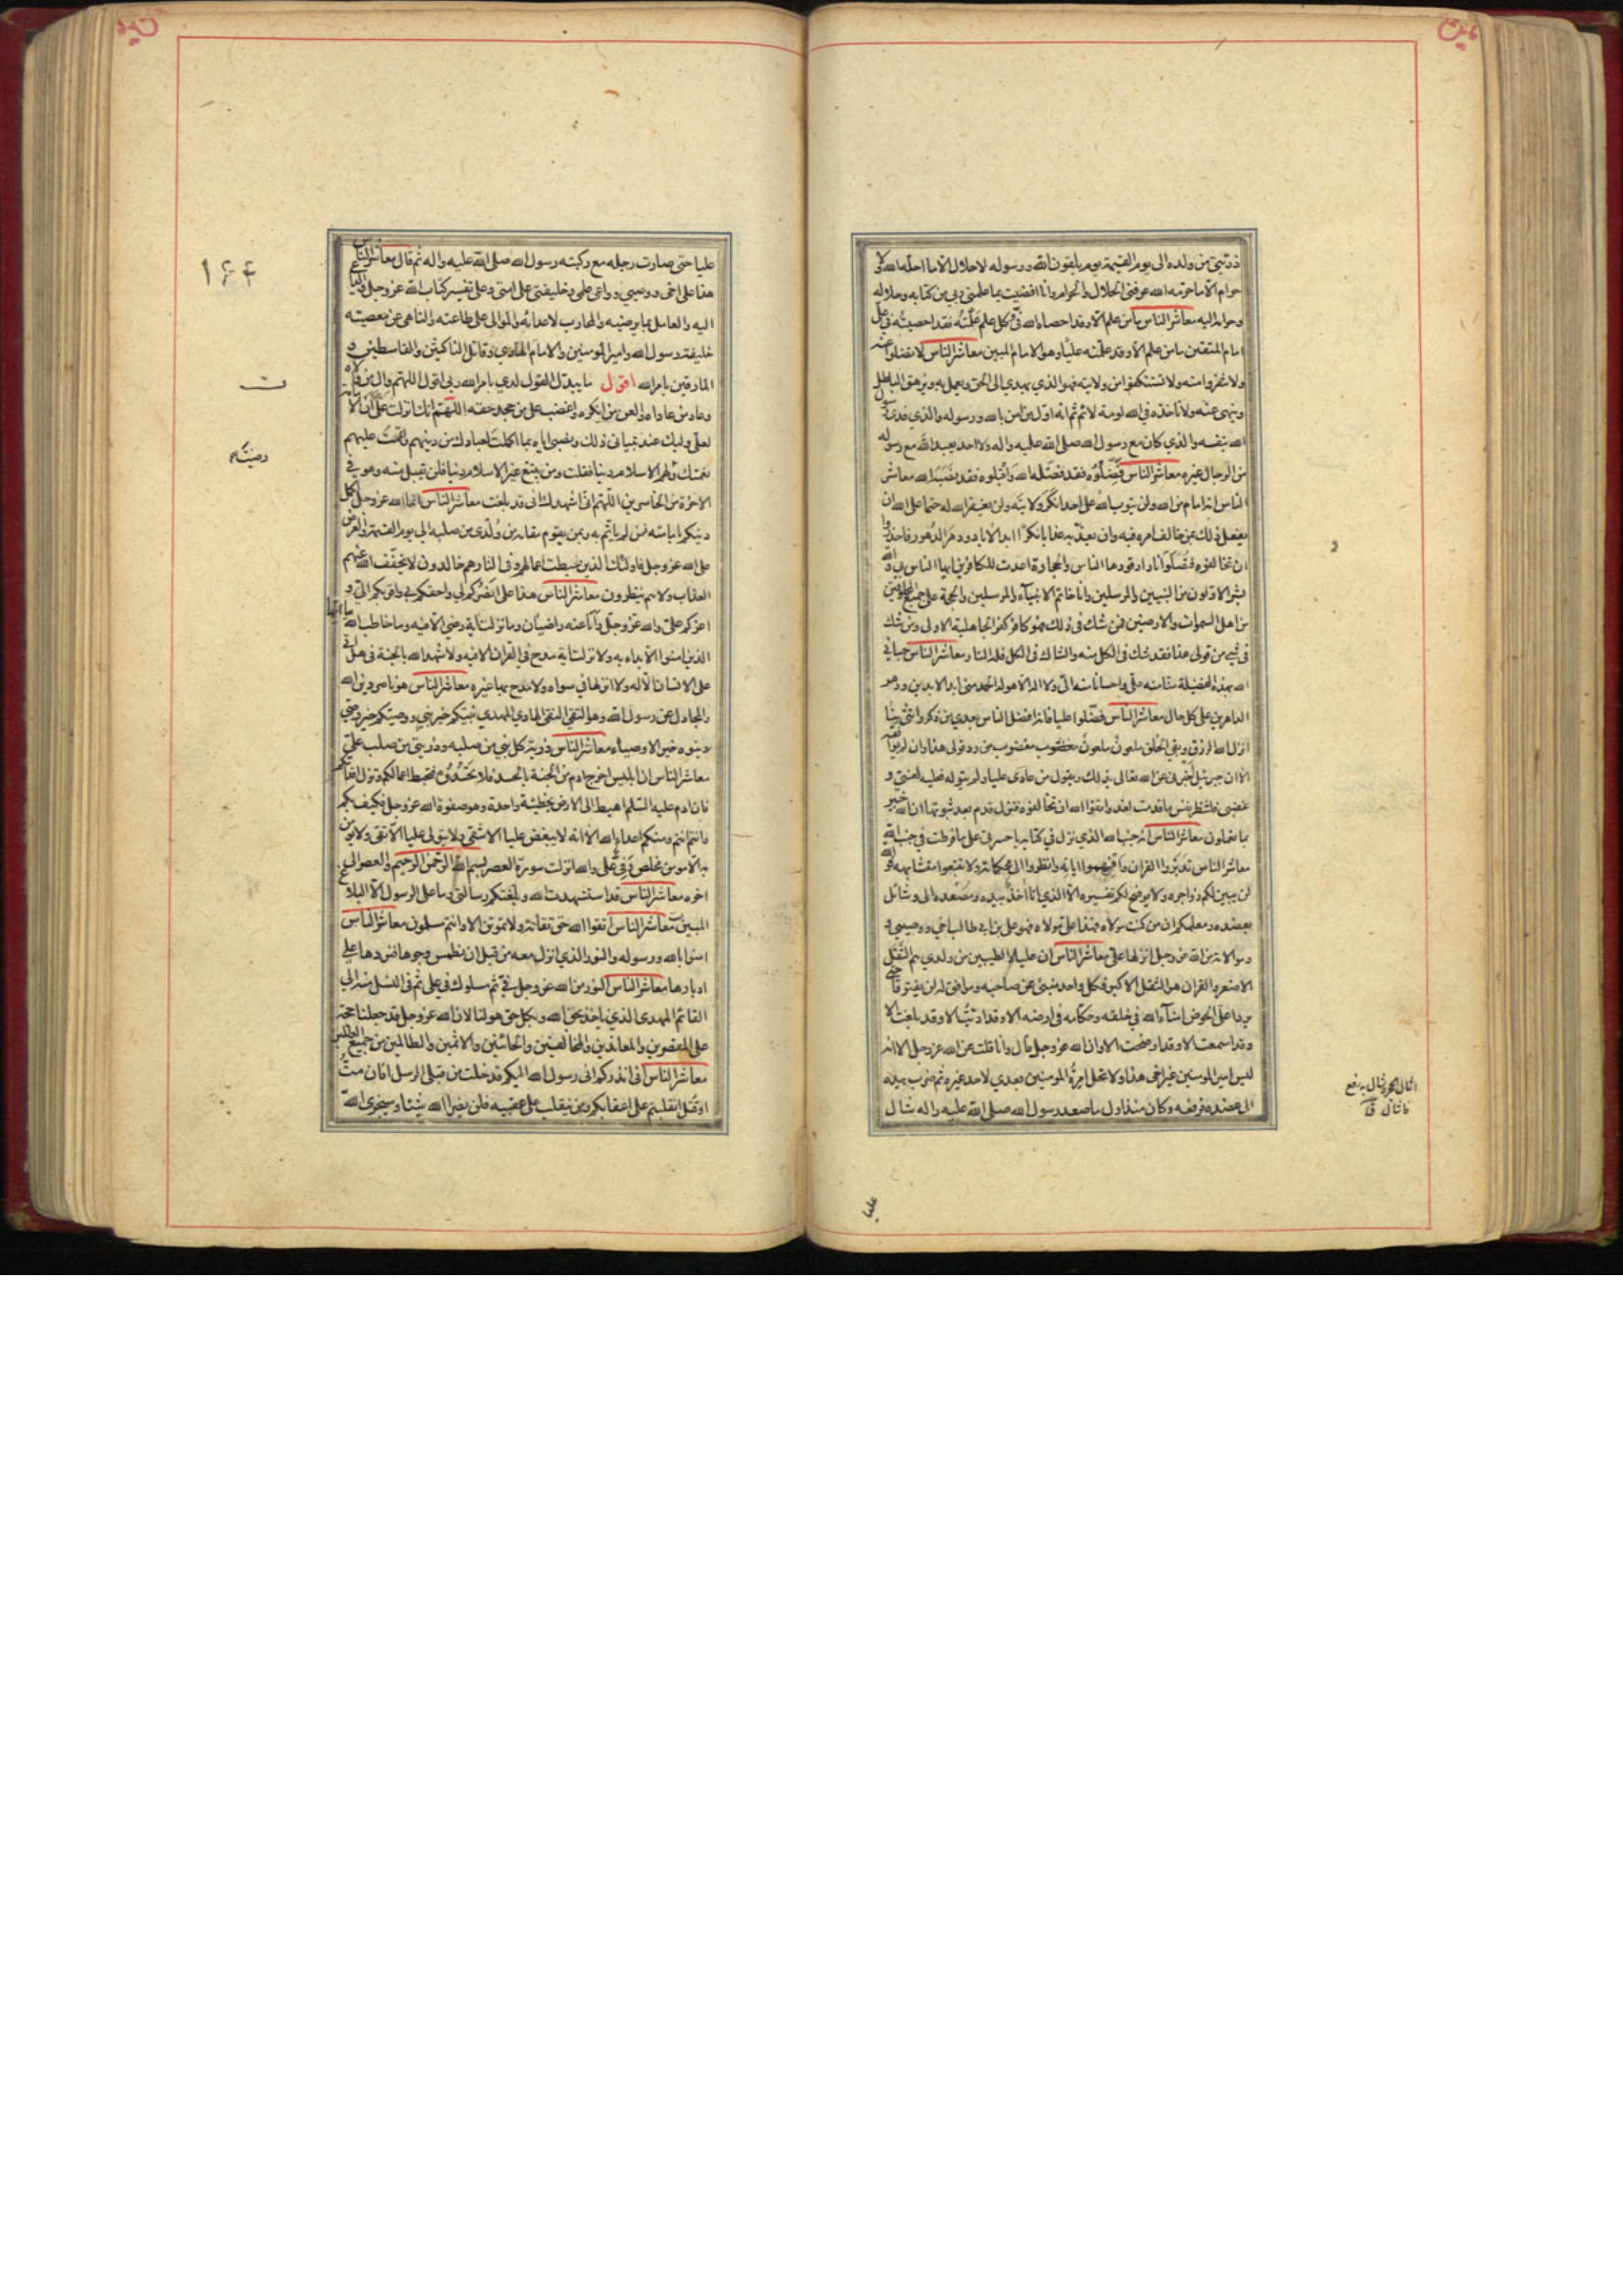 ذريتي من ولده الى يوم القيمة يوم يلقون الله ورسوله لا حلال الا ما احله الله ولا
حرام الا ما حرمه الله عرفني الحلال والحرام وانا افضيت بما علمني ربي من كتابه وحلاله
وحرامه اليه معاشر الناس ما من علم الا وقد احصاه الله في وكل علم علمته فقد احصيته في علي
امام المتقين ما من علم الا وقد علمته عليا وهو الامام المبين معاشر الناس لا تضلوا عنه
ولا تنفروا منه ولا تستنكفوا من ولايته فهو الذي يهدي الى الحق ويعمل به ويزهق الباطل
وينهى عنه ولا تاخذه في الله لومة لائم ثم انه اول من امن بالله ورسوله والذي فدى رسول
الله بنفسه والذي كان مع رسول الله صلى الله عليه واله ولا احد يعبد الله مع رسوله
من الرجال غيره معاشر الناس فضلوه فقد فضله الله واقبلوه فقد نصبه الله معاشر
الناس انه امام من الله ولن يتوب الله على احد انكر ولايته ولن يغفر الله له حتما على الله ان
يفعل ذلك بمن خالف امره فيه وان يعذبه عذابا نكرا ابد الاباد ودهر الدهور فاحذروا
ان تخالفوه فتصلوا نارا وقودها الناس والحجارة اعدت للكافرين ايها الناس بي والله
بشر الاولون من النبيين والمرسلين وانا خاتم الانبياء والمرسلين والحجة على جميع المخلوقين
من اهل السموات والارضين فمن شك في ذلك فهو كافر كفر الجاهلية الاولى ومن شك
في شيء من قولي هذا فقد شك في الكل منه والشاك في الكل فله النار معاشر الناس حباني
الله بهذه الفضيلة منا منه علي واحسانا منه الي ولا اله الا هو له الحمد مني ابد الابدين ودهر
الداهرين على كل حال معاشر الناس فضلوا عليا فانه افضل الناس بعدي من ذكر وانثى بنا
انزل الله الرزق وبقي الخلق ملعون ملعون مغضوب مغضوب من رد قولي هذا وان لم يوافقه
الا ان جبرئيل خبرني عن الله تعالى بذلك ويقول من عادى عليا ولم يتوله فعليه لعنتي و
غضبي فلتنظر نفس ما قدمت لغد واتقوا الله ان تخالفوه فتزل قدم بعد ثبوتها ان الله خبير
بما تعملون معاشر الناس انه جنب الله الذي نزل في كتابه يا حسرتى على ما فرطت في جنب الله
معاشر الناس تدبروا القران وافهموا اياته وانظروا الى محكماته ولا تتبعوا متشابهه فوالله
لن يبين لكم زواجره ولا يوضح لكم تفسيره الا الذي انا اخذ بيده ومصعده الي وشائل
بعضده ومعلمكم ان من كنت مولاه فهذا علي مولاه فهو علي بن ابي طالب اخي ووصيي و
موالاته من الله عز وجل انزلها علي معاشر الناس ان عليا والطيبين من ولدي هم الثقل
الاصغر والقران هو الثقل الاكبر فكل واحد منبئ عن صاحبه وموافق له لن يفترقا حتى
يردا علي الحوض امناء الله في خلقه وحكامه في ارضه الا وقد اديت الا وقد بلغت الا
وقد اسمعت الا وقد اوضحت الا وان الله عز وجل قال وانا قلت عن الله عز وجل الا انه
ليس امير المومنين غير اخي هذا ولا تحل امرة المومنين بعدي لاحد غيره ثم ضرب بيده
الى عضده فرفعه وكان منذ اول ما صعد رسول الله صلى الله عليه واله شال
عليا
عليا حتى صارت رجله مع ركبته رسول الله صلى الله عليه واله ثم قال معاشر الناس
هذا علي اخي ووصيي وواعي علمي وخليفتي على امتي وعلى تفسير كتاب الله عز وجل والداعي
اليه والعامل بما يرضيه والمحارب لاعدائه والموالي على طاعته والناهي عن معصيته
خليفة رسول الله وامير المومنين والامام الهادي وقاتل الناكثين والقاسطين و
المارقين بامر الله اقول ما يبدل القول لدي بامر الله ربي اقول اللهم وال من والاه
وعاد من عاداه والعن من انكره واغضب على من جحد حقه اللهم انك انزلت علي ان الامامة
لعلي وليك عند تبياني ذلك ونصبي اياه بما اكملت لعبادك من دينهم واتممت عليهم
نعمتك ورضيت لهم الاسلام دينا فقلت ومن يبتغ غير الاسلام دينا فلن يقبل منه وهو في
الاخرة من الخاسرين اللهم اني اشهدك اني قد بلغت معاشر الناس انما الله عز وجل اكمل
دينكم بامامته فمن لم ياتم به وبمن يقوم مقامه من ولدي من صلبه الى يوم القيمة والعرض
على الله عز وجل فاولئك الذين حبطت اعمالهم وفي النار هم خالدون لا يخفف الله عنهم
العذاب ولا هم ينظرون معاشر الناس هذا علي انصركم لي واحقكم بي واقربكم الي و
اعزكم علي والله عز وجل وانا عنه راضيان وما نزلت اية رضى الا فيه وما خاطب الله
الذين امنوا الا بداء به ولا نزلت اية مدح في القران الا فيه ولا شهد الله بالجنة في هل اتى
على الانسان الا له ولا انزلها في سواه ولا مدح بها غيره معاشر الناس هو ناصر دين الله
والمجادل عن رسول الله وهو التقي النقي الهادي المهدي نبيكم خير نبي ووصيكم خير وصي
وبنوه خير الاوصياء معاشر الناس ذرية كل نبي من صلبه وذريتي من صلب علي
معاشر الناس ان ابليس اخرج ادم من الجنة بالحسد فلا تحسدوه فتحبط اعمالكم وتزل اقدامكم
فان ادم عليه السلم اهبط الى الارض بخطيئة واحدة وهو صفوة الله عز وجل فكيف بكم
وانتم انتم ومنكم اعداء الله الا انه لا يبغض عليا الا شقي ولا يتولى عليا الا تقي ولا يومن
به الا مومن مخلص وفي علي والله نزلت سورة العصر بسم الله الرحمن الرحيم والعصر الى
اخره معاشر الناس قد استشهدت الله وبلغتكم رسالتي وما على الرسول الا البلاغ
المبين معاشر الناس اتقوا الله حق تقاته ولا تموتن الا وانتم مسلمون معاشر الناس
امنوا بالله ورسوله والنور الذي انزل معه من قبل ان نطمس وجوها فنردها على
ادبارها معاشر الناس النور من الله عز وجل في ثم مسلوك في علي ثم في النسل منه الى
القائم المهدي الذي ياخذ بحق الله وبكل حق هو لنا لان الله عز وجل قد جعلنا حجة
على المقصرين والمعاندين والمخالفين والخائنين والاثمين والظالمين من جميع العالمين
معاشر الناس اني انذركم اني رسول الله اليكم قد خلت من قبلي الرسل افان مت
او قتلت انقلبتم على اعقابكم ومن ينقلب على عقبيه فلن يضر الله شيئا وسيجزي الله